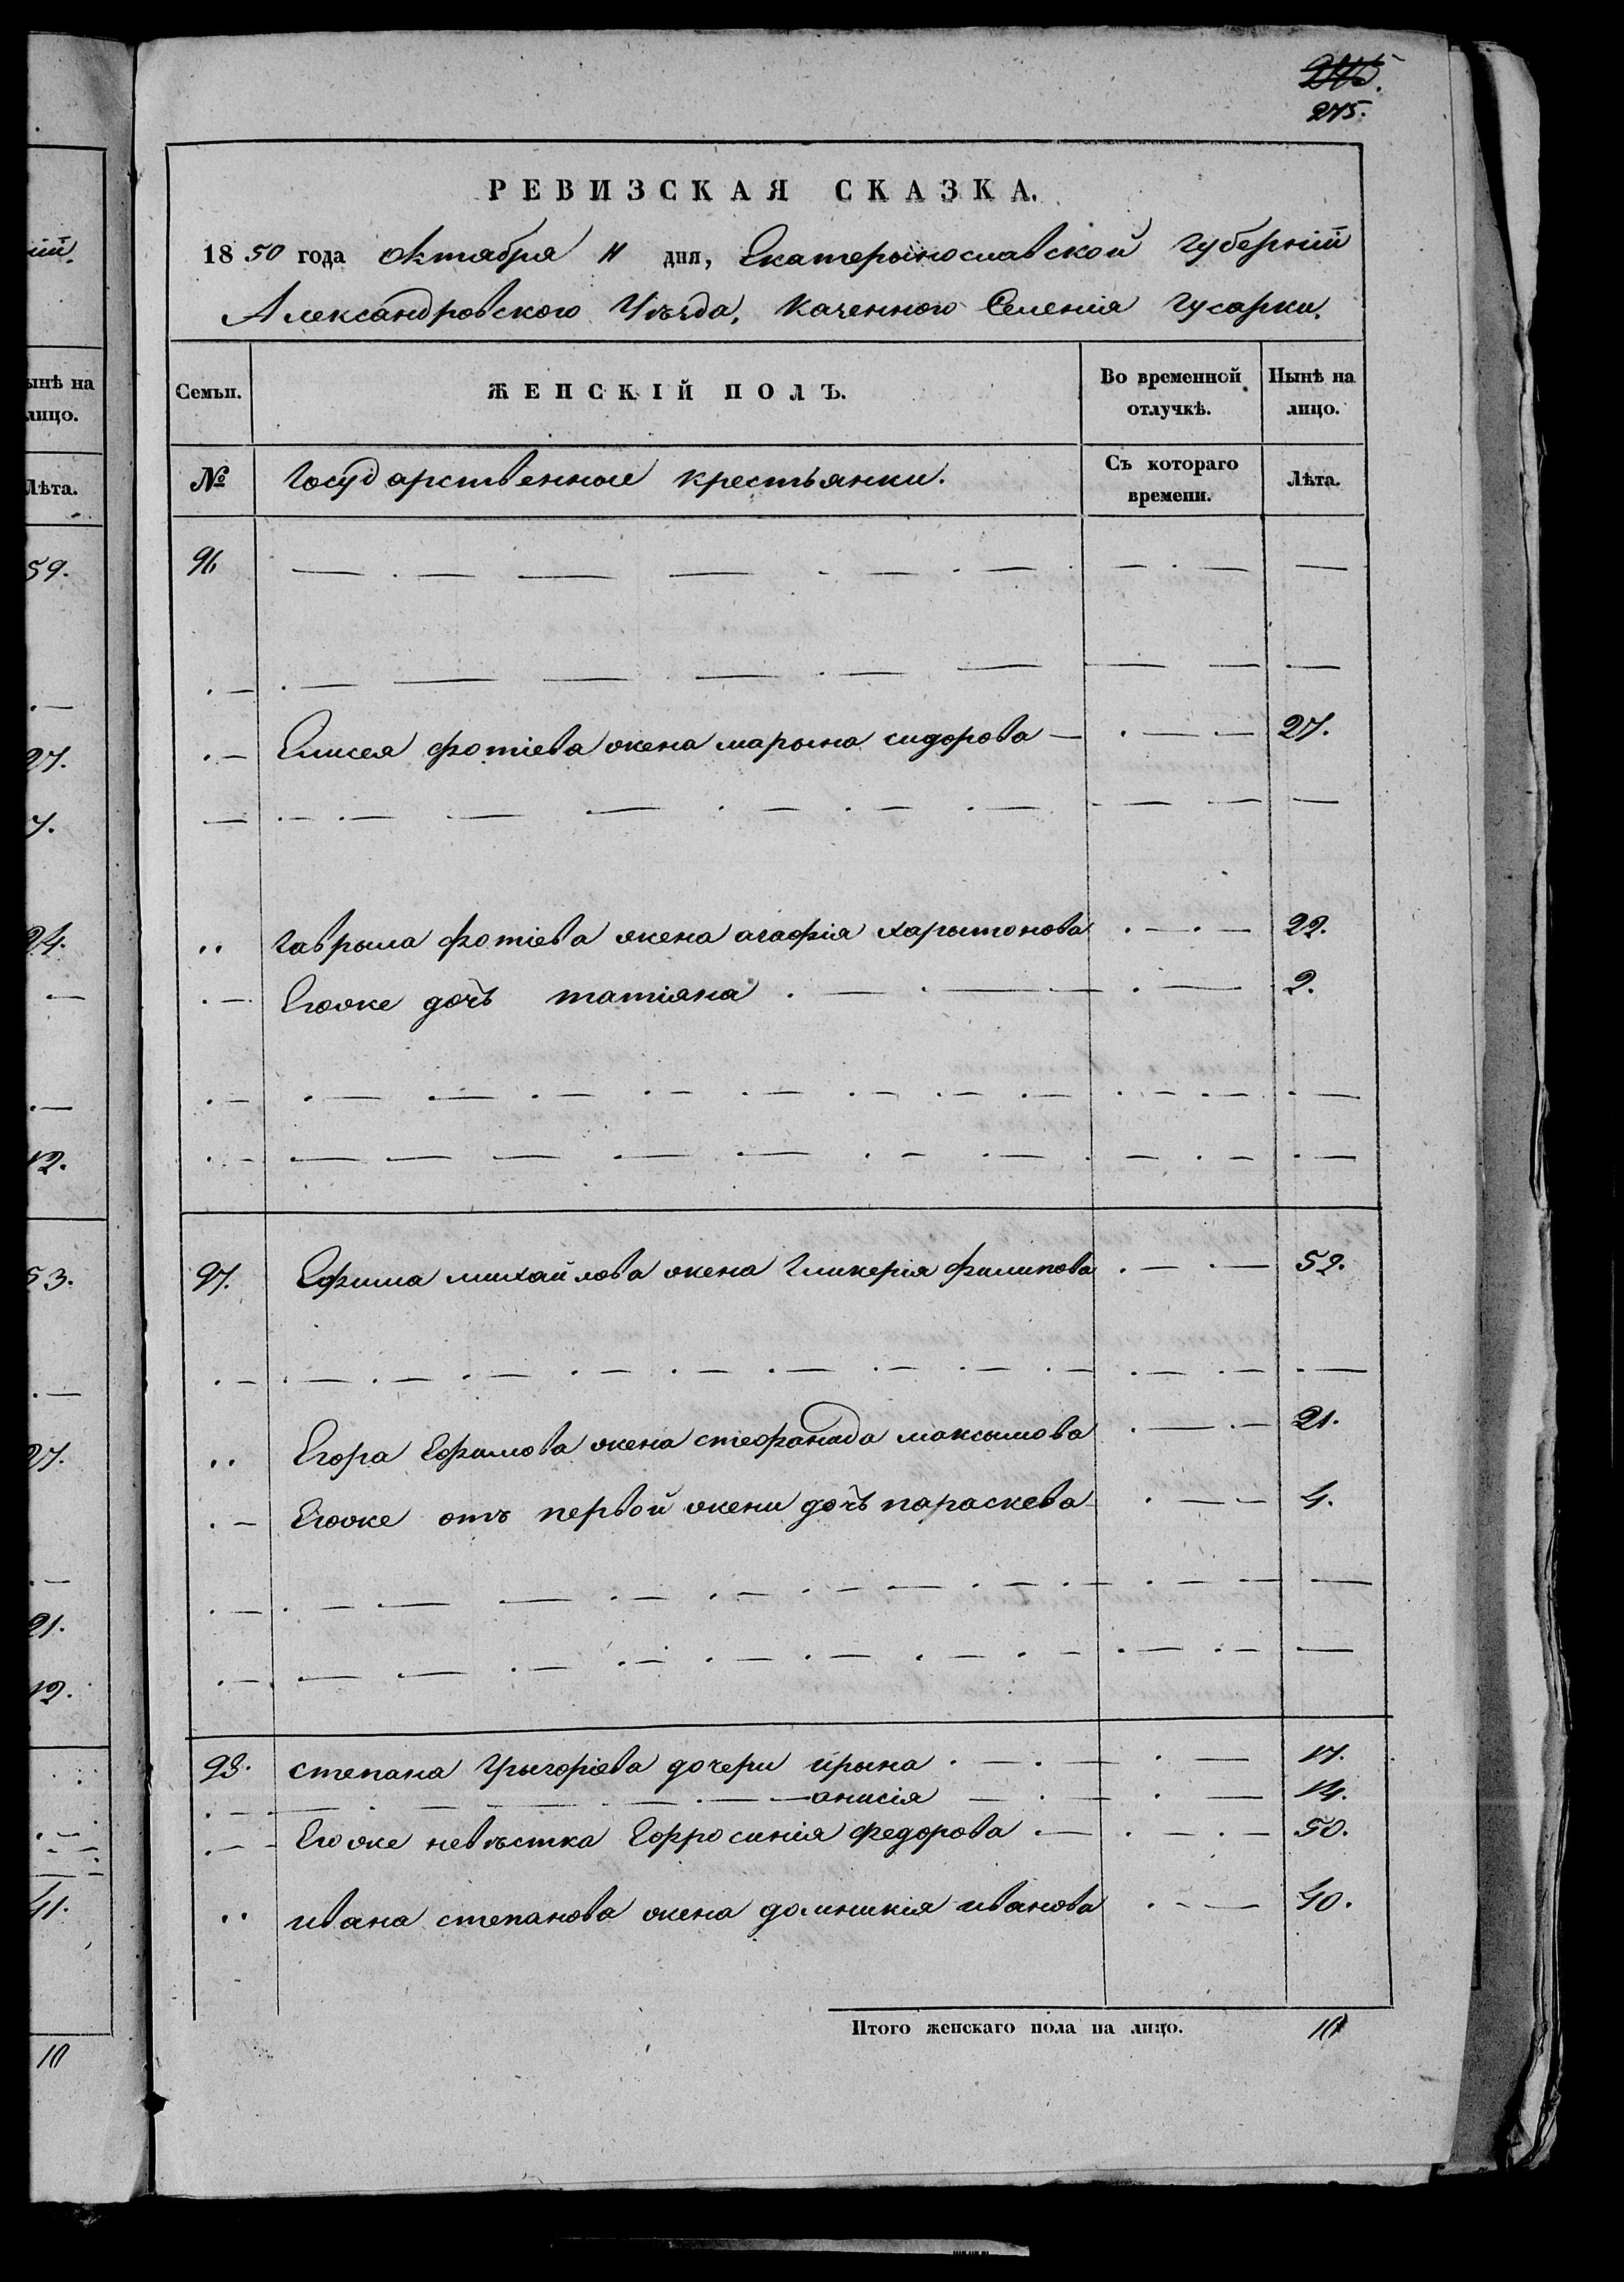 275.
РЕВИЗСКАЯ СКАЗКА.
1850 года октября 11 дня, Екатерынославской губерніи
Александровского Уѣзда, Казенного Селенія Гусарки.
Семьи. ЖЕНСКІЙ ПОЛЪ. Во временной отлучкѣ. Нынѣ на лицо.
№ Государственные крестьянки. Съ котораго времени. Лѣта.
96
Елисея фотіева жена марына сидорова 27.
гаврыла фотіева жена агафія харытонова 22.
Егоже дочь татіяна 2.
97. Ефима михайлова жена гликерія филипова 52.
Егора Ефимова жена стефанида максымова 21.
Егоже отъ первой жени дочь параскева 4.
98. степана Грыгоріева дочери ирына 17.
анисія 14.
Егоже невѣстка Ефросинія федорова 50.
ивана степанова жена домникія иванова 40.
Итого женскаго пола на лицо. 10
ій.
ынѣ на
лицо.
Лѣта.
59.
27.
7.
24.
12.
53.
27.
21.
12.
41.
10